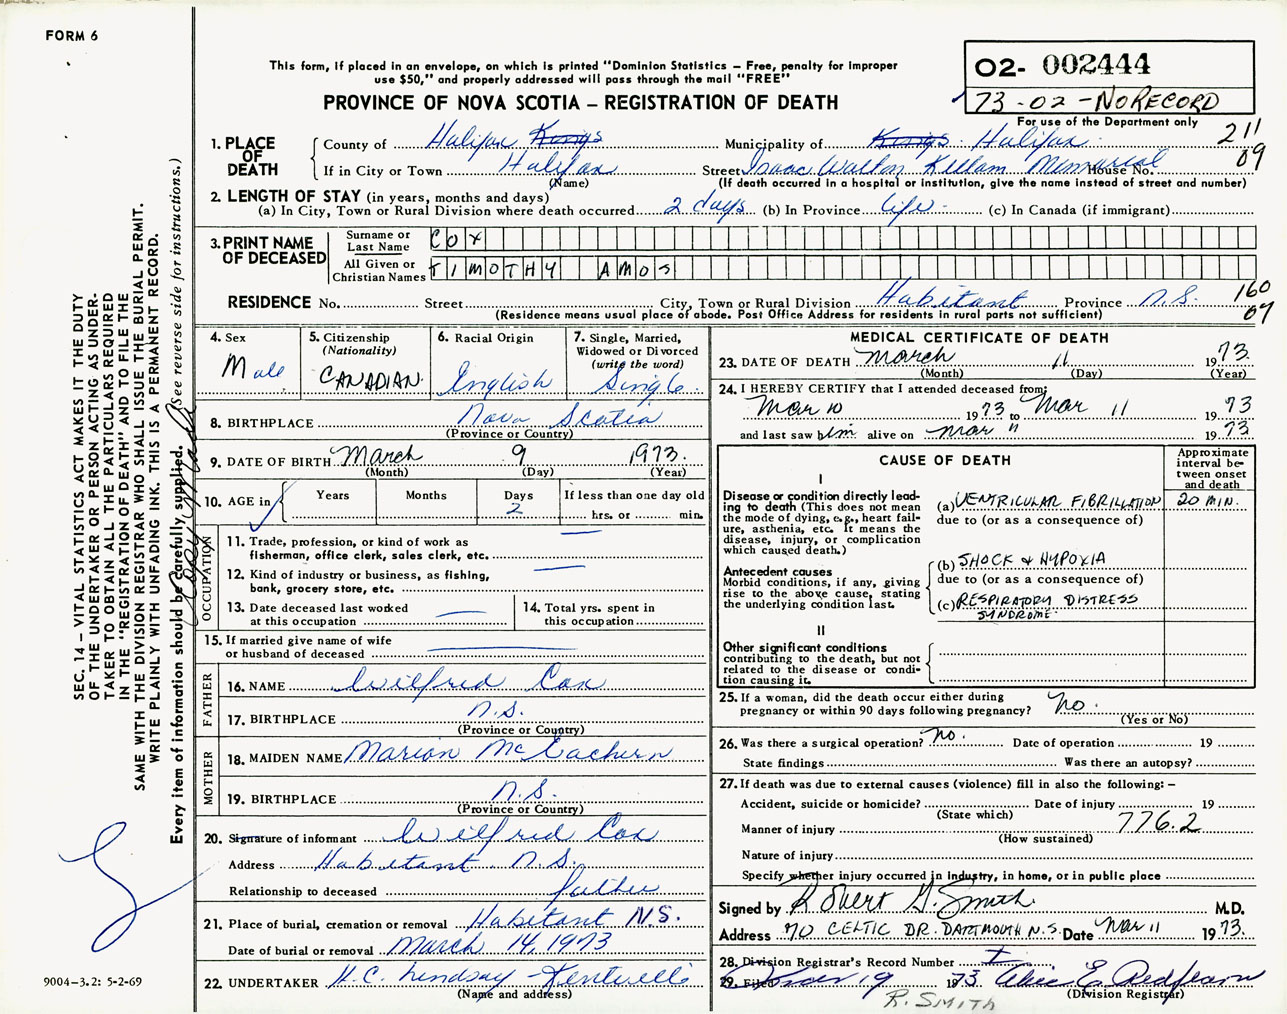 FORM 6
This form, if placed in an envelope, on which is printed "Dominion Statistics – Free, penalty for improper
use $50," and properly addressed will pass through the mail "FREE"
PROVINCE OF NOVA SCOTIA – REGISTRATION OF DEATH
02- 002444
73-02-NO RECORD
For use of the Department only
211
09
1. PLACE OF DEATH
County of Halifax Kings Municipality of Kings Halifax
If in City or Town Halifax Street Isaac Walton Killam Memorial House No.
(Name) (If death occurred in a hospital or institution, give the name instead of street and number)
2. LENGTH OF STAY (in years, months and days)
(a) In City, Town or Rural Division where death occurred 2 days (b) In Province life (c) In Canada (if immigrant)
3. PRINT NAME OF DECEASED
Surname or Last Name COX
All Given or Christian Names TIMOTHY AMOS
RESIDENCE No. Street City, Town or Rural Division Habitant Province N.S.
160
07
(Residence means usual place of abode. Post Office Address for residents in rural parts not sufficient)
4. Sex
Male
5. Citizenship
(Nationality)
CANADIAN.
6. Racial Origin
English
7. Single, Married,
Widowed or Divorced
(write the word)
Single
8. BIRTHPLACE Nova Scotia
(Province or Country)
9. DATE OF BIRTH March 9 1973.
(Month) (Day) (Year)
10. AGE in Years Months Days If less than one day old
2 hrs. or min.
OCCUPATION
11. Trade, profession, or kind of work as
fisherman, office clerk, sales clerk, etc.
12. Kind of industry or business, as fishing,
bank, grocery store, etc.
13. Date deceased last worked
at this occupation
14. Total yrs. spent in
this occupation
15. If married give name of wife
or husband of deceased
FATHER
16. NAME Wilfred Cox
17. BIRTHPLACE N.S.
(Province or Country)
MOTHER
18. MAIDEN NAME Marion McEachern
19. BIRTHPLACE N.S.
(Province or Country)
20. Signature of informant Wilfred Cox
Address Habitant N.S.
Relationship to deceased father
21. Place of burial, cremation or removal Habitant N.S.
Date of burial or removal March 14, 1973
22. UNDERTAKER H.C. Lindsay - Kentville
(Name and address)
MEDICAL CERTIFICATE OF DEATH
23. DATE OF DEATH March 11 1973.
(Month) (Day) (Year)
24. I HEREBY CERTIFY that I attended deceased from:
Mar 10 1973 to Mar 11 1973
and last saw him alive on Mar 11 1973.
CAUSE OF DEATH
Approximate
interval be-
tween onset
and death
I
Disease or condition directly lead-
ing to death (This does not mean
the mode of dying, e.g., heart fail-
ure, asthenia, etc. It means the
disease, injury, or complication
which caused death.)
(a) VENTRICULAR FIBRILLATION 20 MIN.
due to (or as a consequence of)
Antecedent causes
Morbid conditions, if any, giving
rise to the above cause, stating
the underlying condition last.
(b) SHOCK & HYPOXIA
due to (or as a consequence of)
(c) RESPIRATORY DISTRESS
SYNDROME
II
Other significant conditions
contributing to the death, but not
related to the disease or condi-
tion causing it.
25. If a woman, did the death occur either during
pregnancy or within 90 days following pregnancy? No.
(Yes or No)
26. Was there a surgical operation? No. Date of operation 19
State findings Was there an autopsy?
27. If death was due to external causes (violence) fill in also the following: –
Accident, suicide or homicide? Date of injury 19
(State which)
Manner of injury 776.2
(How sustained)
Nature of injury
Specify whether injury occurred in industry, in home, or in public place
Signed by Robert G. Smith M.D.
Address 70 CELTIC DR. DARTMOUTH N.S. Date Mar 11 1973.
28. Division Registrar's Record Number
29. Filed 19 1973 Alice E. Redfearn
(Division Registrar)
R. SMITH
SEC. 14 – VITAL STATISTICS ACT MAKES IT THE DUTY
OF THE UNDERTAKER OR PERSON ACTING AS UNDER-
TAKER TO OBTAIN ALL THE PARTICULARS REQUIRED
IN THE "REGISTRATION OF DEATH" AND TO FILE THE
SAME WITH THE DIVISION REGISTRAR WHO SHALL ISSUE THE BURIAL PERMIT.
WRITE PLAINLY WITH UNFADING INK. THIS IS A PERMANENT RECORD.
Every item of information should be carefully supplied. (See reverse side for instructions.)
9004-3.2: 5-2-69